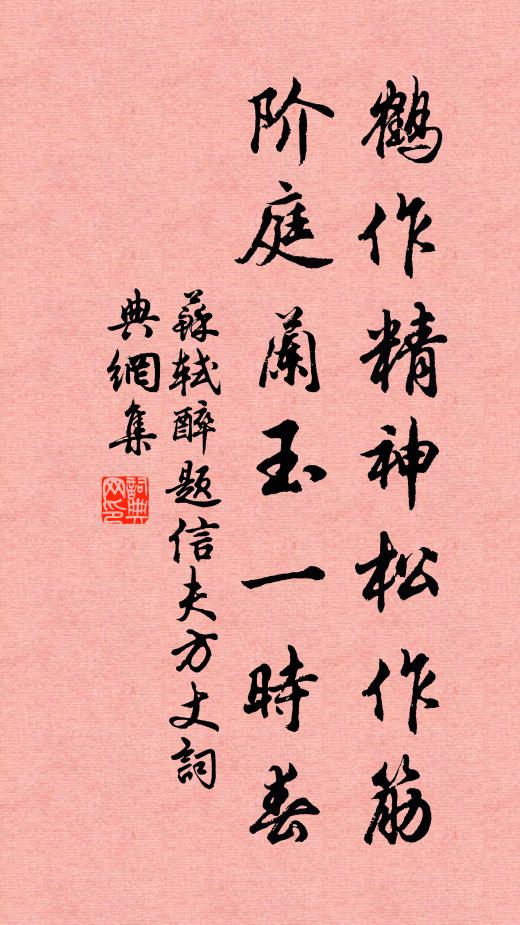 鹤作精神松作筋
阶庭蘭玉一時春
蘇軾醉題信夫方丈詞
典網集
詞典網印